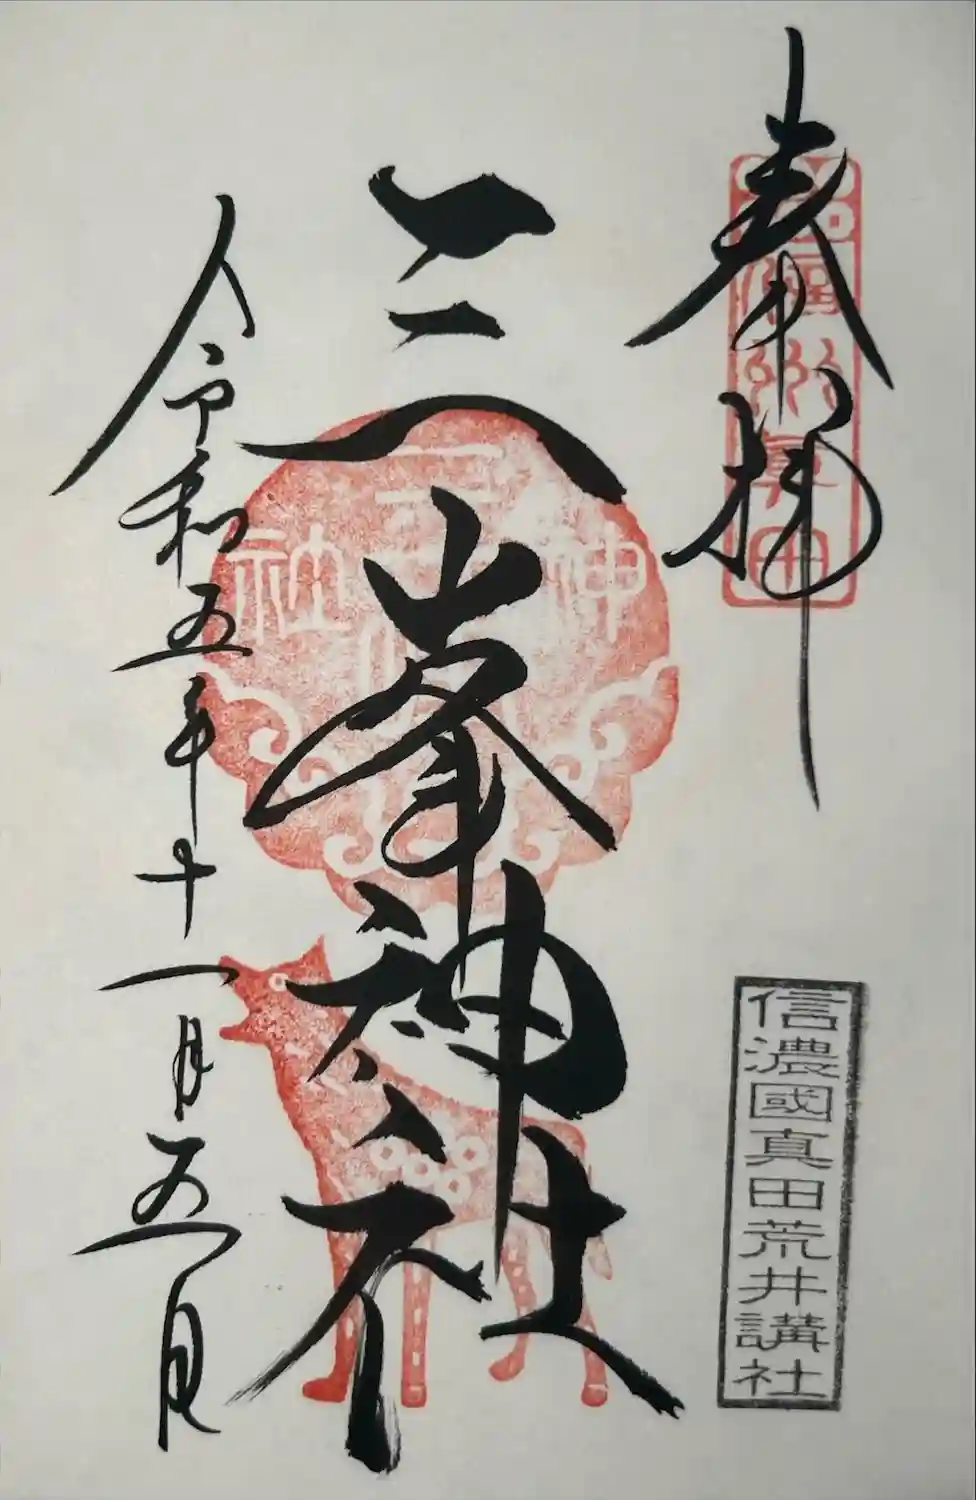 奉拝
信州真田
三峯神社
三峯神社
令和五年十一月五日
信濃國真田荒井講社